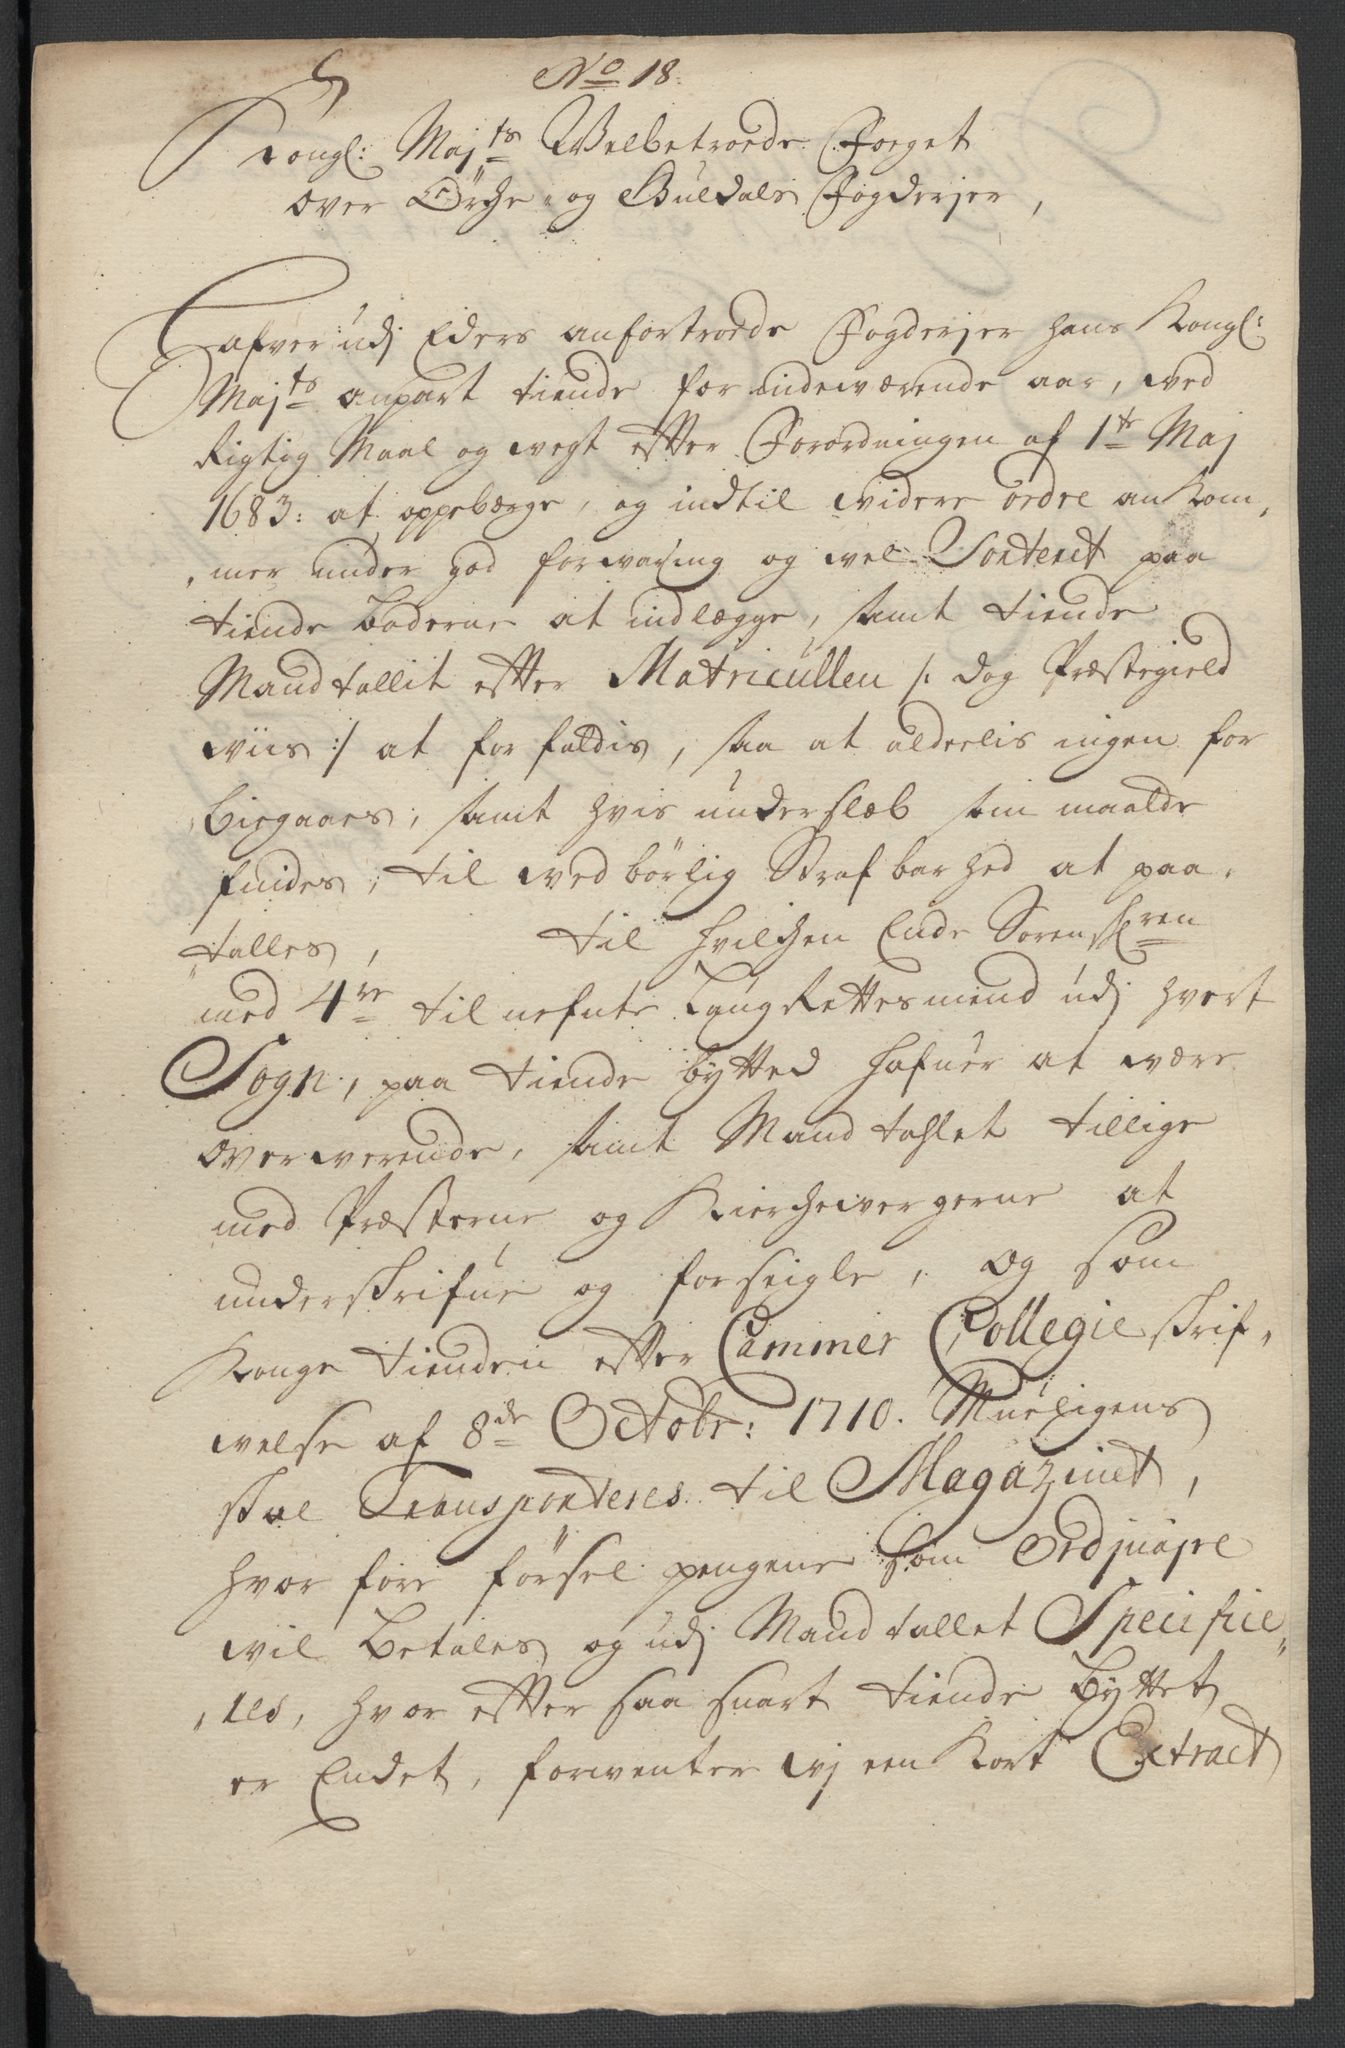 No 18.
Kongl: Maj.ts Welbetroede Foeget
over Örche- og Guldals Fogderjer,
Hafver udj Eders anfortroede Fogderjer hans Kongl:
Maj.ts anpart tiende for indeværende aar, ved
Rigtig Maal og vegt efter Forordningen af 1te Maj
1683: at oppebærge, og indtil videre ordre ankom,
,mer under god forvaring og vel Sorteret paa
tiende boderne at indlægge, samt tiende
Mandtallit efter Matricullen /: dog Præstegield
viis :/ at forfattis, saa at alderlis ingen for
biegaaes, samt hvis underslæb som maatte
findes, til ved börlig Strafbarhed at paa,
,talles, til hvilchen Ende Sorenskren
med 4re tilnefnte LaugRettesmend udj hvert
Sogn, paa tiende bytted hafuer at være
oververende, samt Mandtahlet tillige
med Præsterne og Kierchevergerne at
underskrifue og forseigle, og som
Konge tienden efter Cammer Collegie skrif,
velse af 8de Octobr: 1710. Mueligens
skal Transporteres til Magazinet,
hvor fore försel pengene som Ordinaire
vil betales og udj Mandtallet Specifice,
,res, hvor efter saa snart tiende byttet
er Endet, forventer vj een Kort Extract